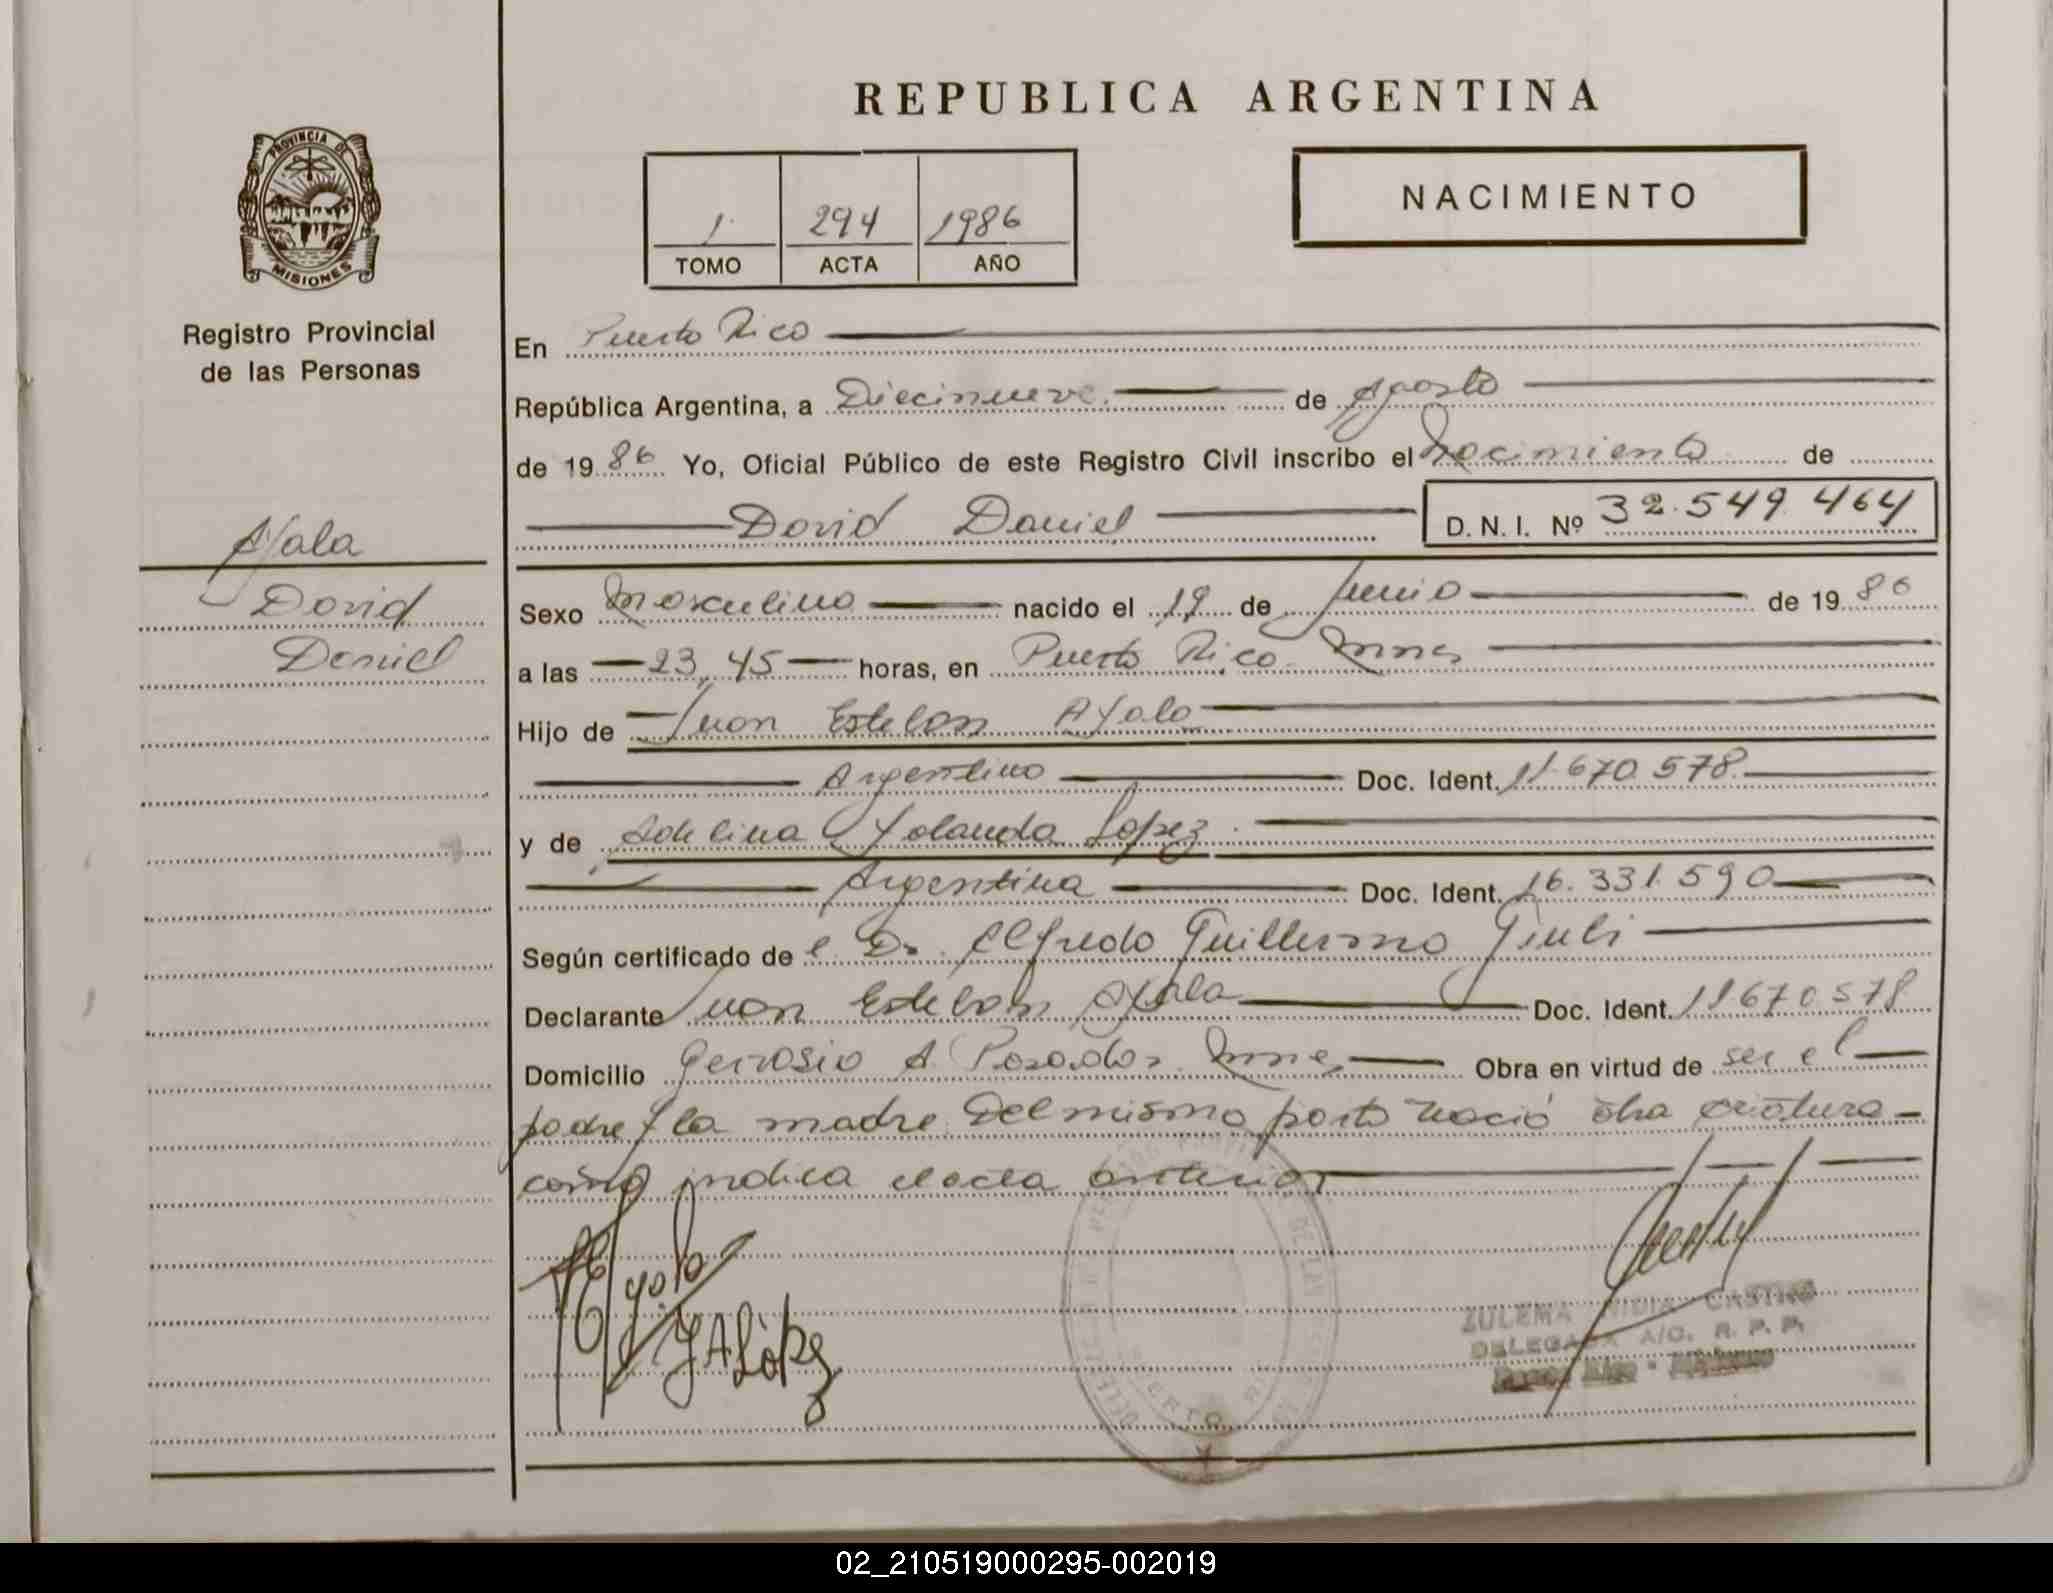 REPUBLICA ARGENTINA
PROVINCIA DE
MISIONES
Registro Provincial
de las Personas
1 294 1986
TOMO ACTA AÑO
NACIMIENTO
En Puerto Rico
República Argentina, a Diecinueve de Agosto
de 19 86 Yo, Oficial Público de este Registro Civil inscribo el Nacimiento de
David Daniel D. N. I. Nº 32.549.464
Ayala
David
Daniel
Sexo Masculino nacido el 19 de Junio de 19 86
a las 23,45 horas, en Puerto Rico Mnes
Hijo de Juan Esteban Ayala
Argentino Doc. Ident. 11.670.578
y de Adelina Yolanda Lopez
Argentina Doc. Ident. 16.331.590
Según certificado de l Dr. Alfredo Guillermo Giuli
Declarante Juan Esteban Ayala Doc. Ident. 11670578
Domicilio Gervasio A. Posadas Mnes Obra en virtud de ser el
padre y la madre Del mismo parto nació otra criatura
como indica el acta anterior
Ayala
Y A López
ZULEMA NIDIA CASTRO
DELEGADA A/C. R. P. P.
Puerto Rico - Misiones
02_210519000295-002019